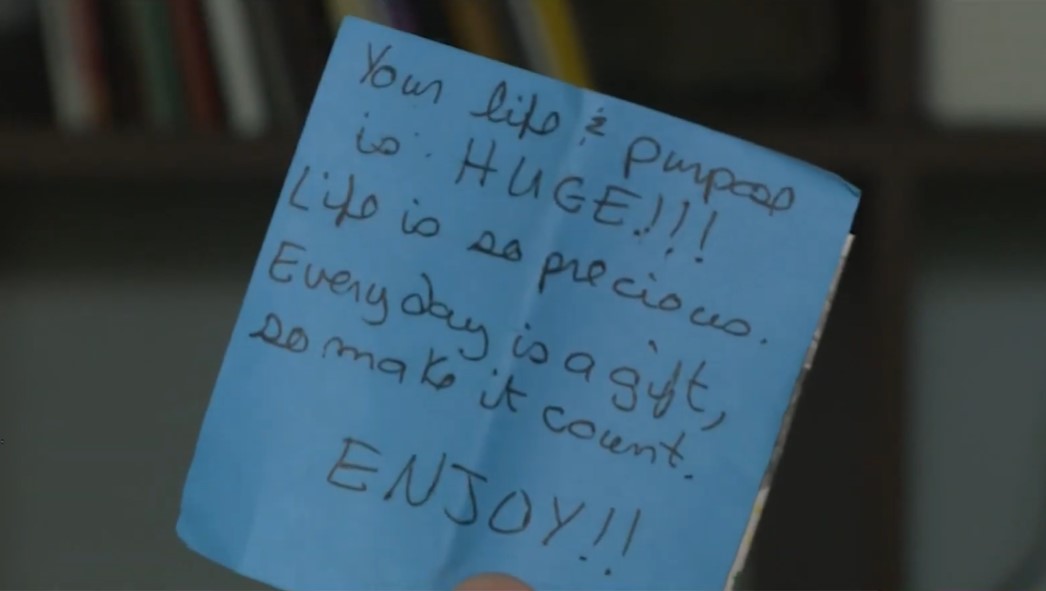 Your life & purpose
is: HUGE!!!
Life is so precious.
Everyday is a gift,
so make it count.
ENJOY!!